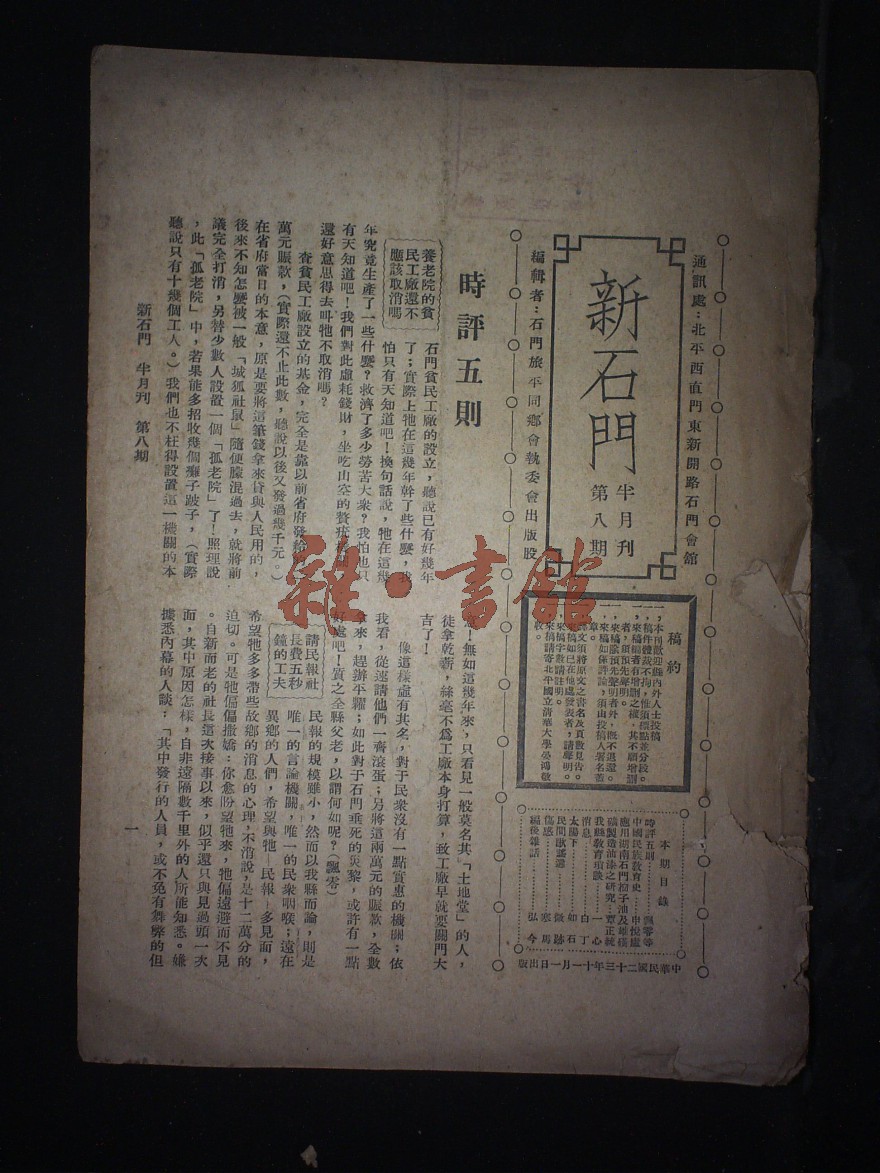 通訊處：北平西直門東新開路石門會館
新石門
半月刊
第八期
編輯者：石門旅平同鄉會執委會出版股
稿約
一，本刊歡迎縣內外人士投稿
一，稿件體裁不拘，惟須標點並分段。
一，來稿編者有增刪之權，其不願增刪
者，須預先聲明。
一，來稿除預先聲明者外，概不退還。
一，來稿如係評論，須由投稿人署名蓋
章。
一，譯文須將原文之書名及頁數見告。
一，來稿如已在他處發表者，請聲明。
一，來稿字數請註明。
一，來稿請寄北平國立清華大學晏鴻敬
收。
本期目錄
時評五則 飄零等
中國民族教育史 申悅廬
應用湖南石門桐子油及雄磺
礦製造油漆之研究 覃正統
我縣教育瑣談 一心
消息 白丁
太陽下 如石
民間歌謠 微跡
傷感 寒馬
編後雜話 弘今
中華民國二十三年十一月一日出版
時評五則
養老院的貧
民工廠還不
應該取消嗎
石門貧民工廠的設立，聽說已有好幾年
了；實際上牠在這幾年幹了些什麼，我
怕只有天知道吧！換句話說，牠在這幾
年究竟生產了一些什麼？救濟了多少勞苦大衆？我怕也只
有天知道吧！我們對此虛耗錢財，坐吃山空的贅疣機關
還好意思得去叫牠不取消嗎？
查貧民工廠設立的基金，完全是靠以前省府發給
萬元賑款，（實際還不止此數，聽說以後又發過幾千元。）
在省府當日的本意，原是要將這筆錢拿來貸與人民用的，
後來不知怎麼被一般「城狐社鼠」隨便朦混過去，就將前
議完全打消，另替少數人設置一個「孤老院」了！照理說
，此「孤老院」中，若果能多招收幾個癱子跛子，（實際
聽說只有十幾個工人。）我們也不枉得設置這一機關的本
意！無如這幾年來，只看見一般莫名其「土地堂」的人，
徒拿乾薪，絲毫不爲工廠本身打算，致工廠早就要關門大
吉了！
像這樣虛有其名，對于民衆沒有一點實惠的機關；依
我看，從速請他們一齊滾蛋；另將這兩萬元的賑款，全數
拿來，趕辦平糶；如此對于石門垂死的災黎，或許有一點
好處吧！質之全縣父老，以謂何如呢？（飄零）
請民報社
長費五秒
鐘的工夫
民報的規模雖小，然而以我縣而論，則是
唯一的言論機關，唯一的民衆咽喉；遠在
異鄉的人們，希望與牠—民報—多見面，
希望牠多多帶些故鄉的消息的心理，不消說，是十二萬分的
迫切。可是牠偏偏撒嬌：你愈盼望牠來，牠偏遠避而不見
。自新而老的社長這次接事以來，似乎還只與見過頭一次
面，其中原因怎樣，自非遠隔數千里外的人所能知悉。嫌
據悉內幕的人談：「其中發行的人員，或不免有舞弊的但
新石門 半月刊 第八期
一
雜·書館